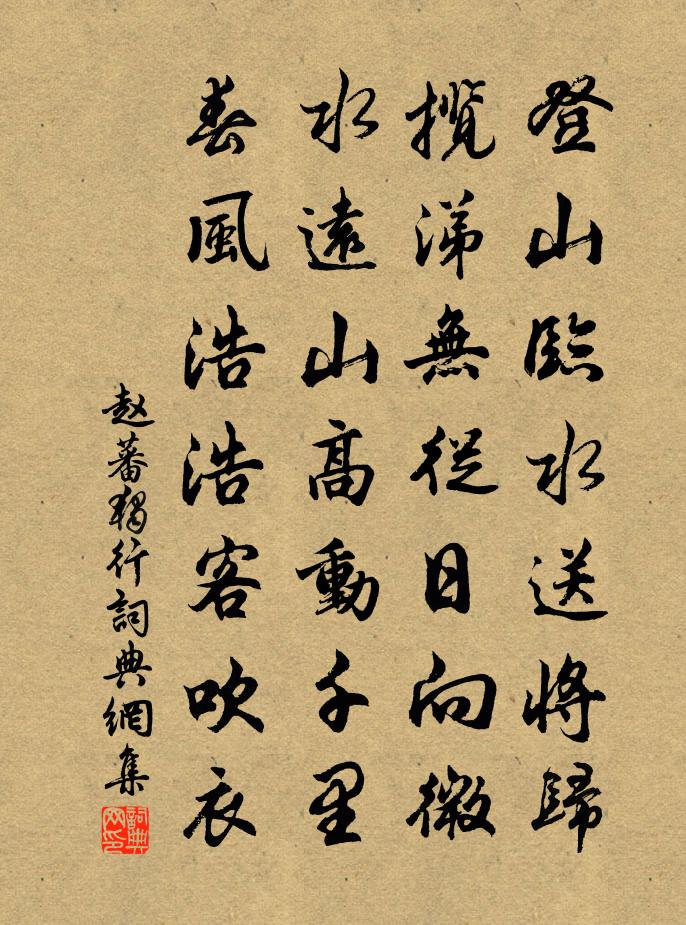 登山臨水送將歸
攬涕無從日向微
水遠山高動千里
春風浩浩客吹衣
赵蕃獨行詞典網集
詞典網印